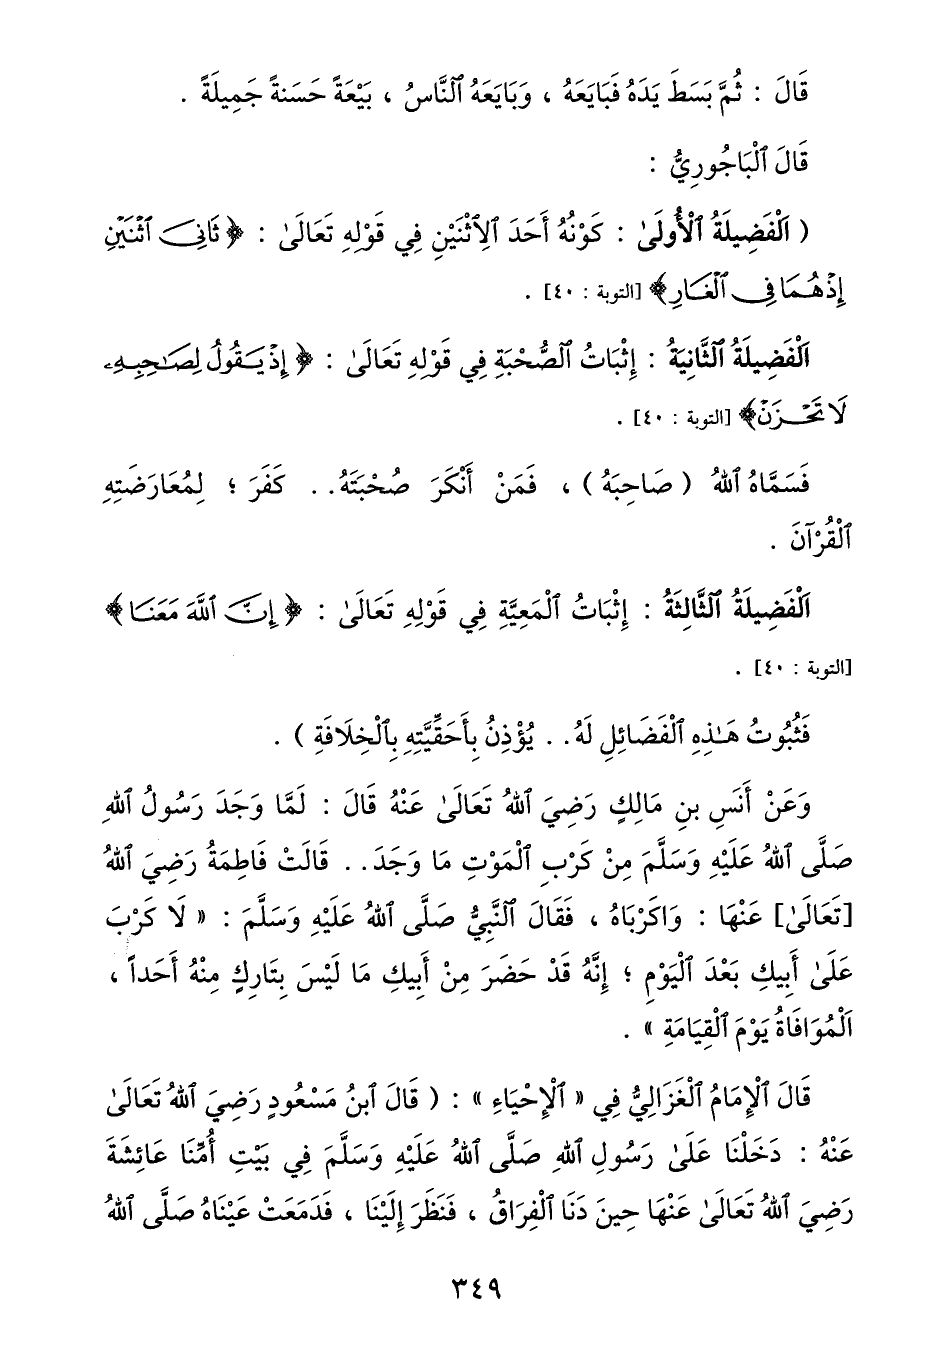 قَالَ : ثُمَّ بَسَطَ يَدَهُ فَبَايَعَهُ ، وَبَايَعَهُ ٱلنَّاسُ ، بَيْعَةً حَسَنةً جَمِيلَةً .
قَالَ ٱلْبَاجُورِيُّ :
( ٱلْفَضِيلَةُ ٱلأُولَىٰ : كَوْنُهُ أَحَدَ ٱلِاثْنَيْنِ فِي قَوْلِهِ تَعَالَىٰ : ﴿ ثَانِىَ ٱثْنَيْنِ
إِذْ هُمَا فِى ٱلْغَارِ ﴾ [التوبة : ٤٠] .
ٱلْفَضِيلَةُ ٱلثَّانِيَةُ : إِثْبَاتُ ٱلصُّحْبَةِ فِي قَوْلِهِ تَعَالَىٰ : ﴿ إِذْ يَقُولُ لِصَٰحِبِهِۦ
لَا تَحْزَنْ ﴾ [التوبة : ٤٠] .
فَسَمَّاهُ ٱللهُ ( صَاحِبَهُ ) ، فَمَنْ أَنْكَرَ صُحْبَتَهُ. . كَفَرَ ؛ لِمُعَارَضَتِهِ
ٱلْقُرْآنَ .
ٱلْفَضِيلَةُ ٱلثَّالِثَةُ : إِثْبَاتُ ٱلْمَعِيَّةِ فِي قَوْلِهِ تَعَالَىٰ : ﴿ إِنَّ ٱللَّهَ مَعَنَا ﴾
[التوبة : ٤٠] .
فَثُبُوتُ هَـٰذِهِ ٱلْفَضَائِلِ لَهُ. . يُؤْذِنُ بِأَحَقِّيَّتِهِ بِٱلْخِلَافَةِ ) .
وَعَنْ أَنَسِ بنِ مَالِكٍ رَضِيَ ٱللهُ تَعَالَىٰ عَنْهُ قَالَ : لَمَّا وَجَدَ رَسُولُ ٱللهِ
صَلَّى ٱللهُ عَلَيْهِ وَسَلَّمَ مِنْ كَرْبِ ٱلْمَوْتِ مَا وَجَدَ. . قَالَتْ فَاطِمَةُ رَضِيَ ٱللهُ
[تَعَالَىٰ] عَنْهَا : وَاكَرْبَاهُ ، فَقَالَ ٱلنَّبِيُّ صَلَّى ٱللهُ عَلَيْهِ وَسَلَّمَ : « لَا كَرْبَ
عَلَىٰ أَبِيكِ بَعْدَ ٱلْيَوْمِ ؛ إِنَّهُ قَدْ حَضَرَ مِنْ أَبِيكِ مَا لَيْسَ بِتَارِكٍ مِنْهُ أَحَداً ،
ٱلْمُوَافَاةُ يَوْمَ ٱلْقِيَامَةِ » .
قَالَ ٱلْإِمَامُ ٱلْغَزَالِيُّ فِي « ٱلْإِحْيَاءِ » : ( قَالَ ٱبنُ مَسْعُودٍ رَضِيَ ٱللهُ تَعَالَىٰ
عَنْهُ : دَخَلْنَا عَلَىٰ رَسُولِ ٱللهِ صَلَّى ٱللهُ عَلَيْهِ وَسَلَّمَ فِي بَيْتِ أُمِّنَا عَائِشَةَ
رَضِيَ ٱللهُ تَعَالَىٰ عَنْهَا حِينَ دَنَا ٱلْفِرَاقُ ، فَنَظَرَ إِلَيْنَا ، فَدَمَعَتْ عَيْنَاهُ صَلَّى ٱللهُ
٣٤٩